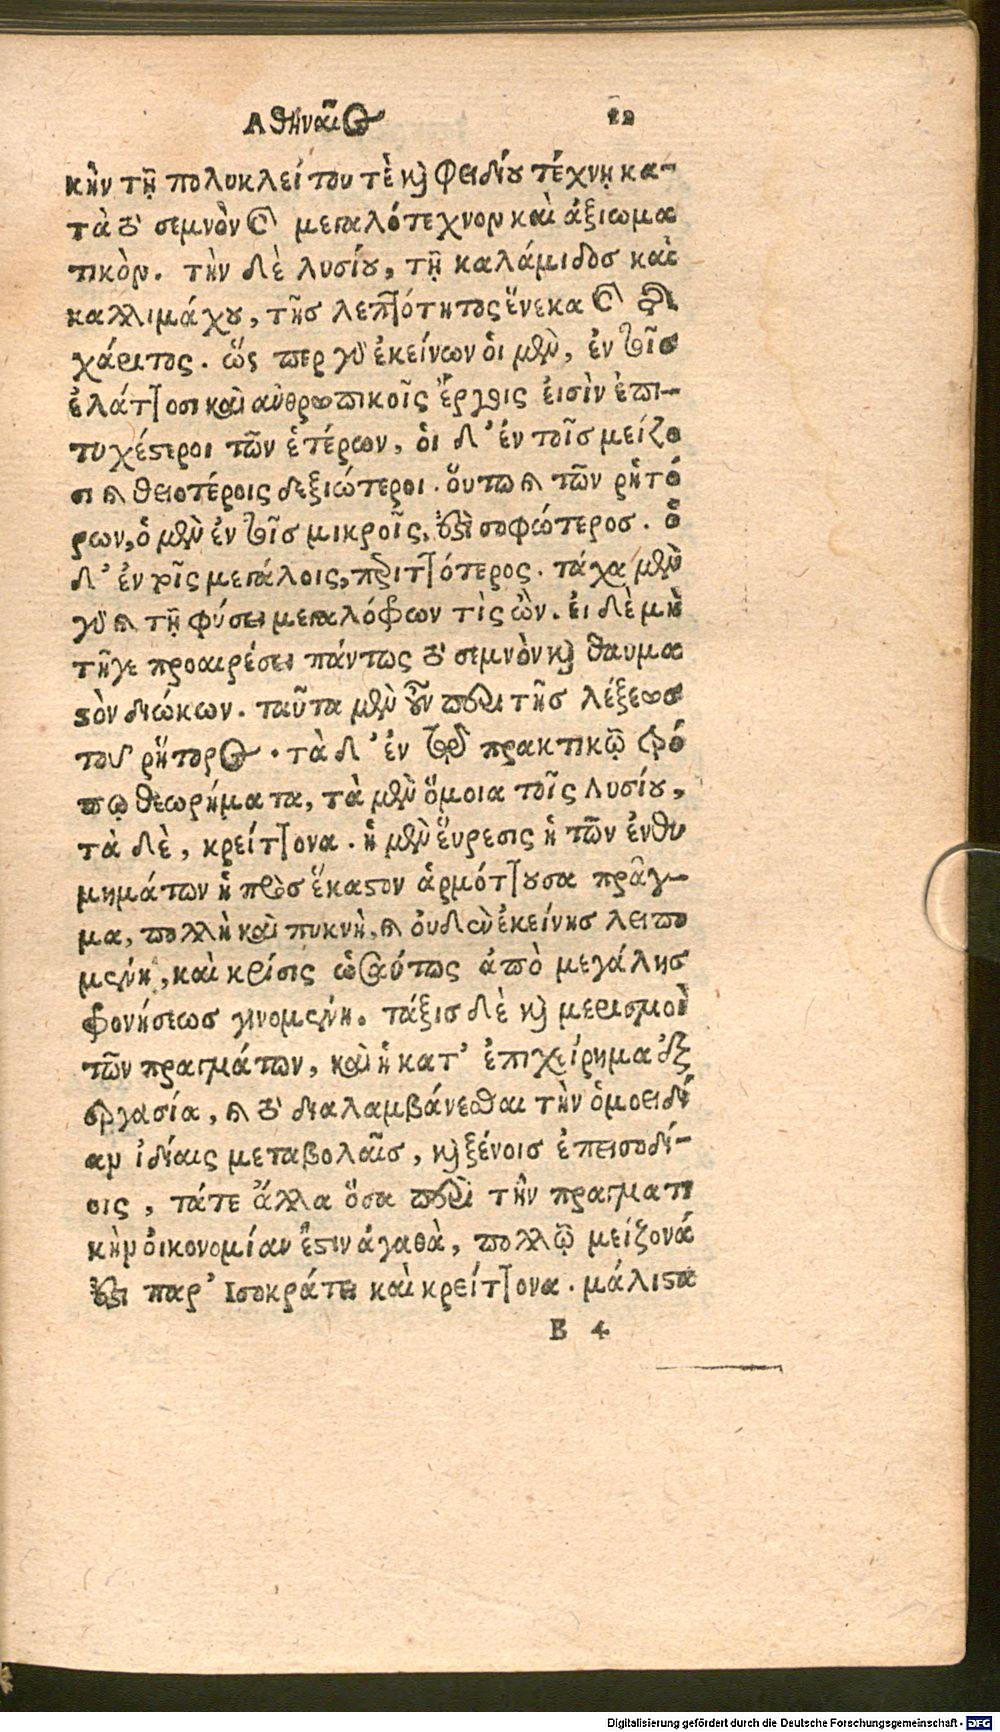 Ἀθηναῖος 12
κὴν τῇ πολυκλείτου τὲ καὶ Φειδίου τέχνῃ κα-
τὰ τὸ σεμνὸν καὶ μεγαλότεχνον καὶ ἀξιωμα
τικὸν. τὴν δὲ λυσίου, τῇ καλάμιδος καὶ
καλλιμάχου, τῆς λεπτότητος ἕνεκα καὶ τῆς
χάριτος. ὥς περ γὰρ ἐκείνων ὁι μὲν, ἐν τοῖς
ἐλάττοσι καὶ ἀνθρωπικοῖς ἔργοις ἐισὶν ἐπι-
τυχέστεροι τῶν ἑτέρων, ὁι δ' ἐν τοῖς μείζο
σι καὶ θειοτέροις δεξιώτεροι. ὅυτω καὶ τῶν ῥητό
ρων, ὁ μὲν ἐν τοῖς μικροῖς, ἐστὶ σοφώτερος. ὁ
δ' ἐν τοῖς μεγάλοις, περιττότερος. τάχα μὲν
γὰρ καὶ τῇ φύσει μεγαλόφρων τὶς ὢν. ἐι δὲ μὴ
τῇγε προαιρέσει πάντως τὸ σεμνὸν καὶ θαυμα
στὸν διώκων. ταῦτα μὲν οὖν περὶ τῆς λέξεως
τοῦ ῥήτορος. τὰ δ' ἐν τῷ πρακτικῷ τρό
πῳ θεωρήματα, τὰ μὲν ὅμοια τοῖς λυσίου,
τὰ δὲ, κρείττονα. ἡ μὲν ἕυρεσις ἡ τῶν ἐνθυ
μημάτων ἡ πρὸς ἕκαστον ἁρμόττουσα πρᾶγ-
μα, πολλὴ καὶ πυκνὴ, καὶ ὀυδὲν ἐκείνης λειπο
μένη, καὶ κρίσις ὡσαύτως ἀπὸ μεγάλης
φρονήσεως γινομένη. τάξις δὲ καὶ μερισμοὶ
τῶν πραγμάτων, καὶ ἡ κατ' ἐπιχείρημα ἐξ
εργασία, καὶ τὸ διαλαμβάνεσθαι τὴν ὁμοειδί
αν ἰδίαις μεταβολαῖς, καὶ ξένοις ἐπεισοδί-
οις, τάτε ἄλλα ὅσα περὶ τὴν πραγματι
κὴν ὀικονομίαν ἔστιν ἀγαθὰ, πολλῷ μείζονά
ἐστι παρ' Ισοκράτει καὶ κρείττονα. μάλιστα
B 4
Digitalisierung gefördert durch die Deutsche Forschungsgemeinschaft - DFG